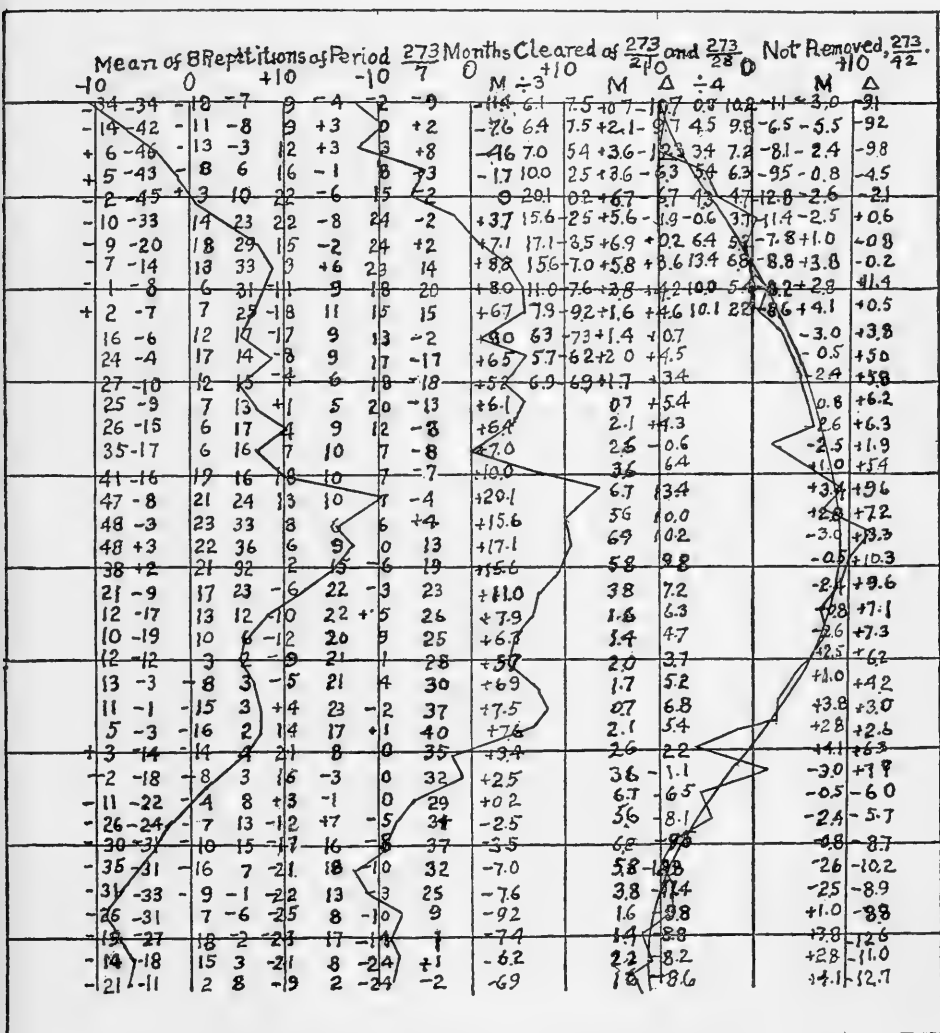 Mean of 8 Reptitions of Period 273/7 Months Cleared of 273/21 and 273/28. Not Removed, 273/42.
-10 0 +10 -10 0 +10 0 0 +10
M ÷3 M Δ ÷4 M Δ
-34 -34 -18 -7 9 -4 -2 -9 -11.4 6.1 7.5 +0.7 -10.7 10.2 -1.1 -3.0 -9.1
-14 -42 -11 -8 9 +3 0 +2 -7.6 6.4 7.5 +2.1 -9.7 4.5 9.8 -6.5 -5.5 -92
+6 -46 -13 -3 12 +3 3 +8 -46 7.0 54 +3.6 -12.3 34 7.2 -8.1 -2.4 -9.8
+5 -43 -8 6 16 -1 8 +3 -1.7 10.0 2.5 +3.6 -6.3 5.4 6.3 -95 -0.8 -4.5
-2 -45 +3 10 22 -6 15 -2 0 20.1 0.2 +6.7 -6.7 4.3 4.7 -12.8 -2.6 -2.1
-10 -33 14 23 22 -8 24 -2 +3.7 15.6 -2.5 +5.6 -3.9 -0.6 3.7 -11.4 -2.5 +0.6
-9 -20 18 29 15 -2 24 +2 +7.1 17.1 -3.5 +6.9 +0.2 6.4 5.2 -7.8 +1.0 -0.8
-7 -14 13 33 3 +6 23 14 +8.8 15.6 -7.0 +5.8 +3.6 13.4 6.8 -8.8 +3.8 -0.2
-1 -8 6 31 -11 9 18 20 +8.0 11.0 -7.6 +3.8 +4.2 10.0 -8.2 +2.8 +11.4
+2 -7 7 25 -18 11 15 15 +67 7.9 -92 +1.6 +4.6 10.1 22 -8.6 +4.1 +0.5
16 -6 12 17 -17 9 13 -2 +9.0 63 -73 +1.4 +0.7 -3.0 +3.8
24 -4 17 14 -8 9 17 -17 +65 5.7 -62 +2.0 +4.5 -0.5 +50
27 -10 12 15 -4 6 18 -18 +52 6.9 -69 +1.7 +3.4 -2.4 +5.8
25 -9 7 13 +1 5 20 -13 +6.1 0.7 +5.4 0.8 +6.2
26 -15 6 17 4 9 12 -8 +6.4 2.1 +4.3 2.6 +6.3
35 -17 6 16 7 10 7 -8 +7.0 2.6 -0.6 -2.5 +1.9
41 -16 12 16 18 10 7 -7 +10.0 3.6 6.4 +1.0 +54
47 -8 21 24 13 10 7 -4 +20.1 6.7 13.4 +3.4 +96
48 -3 23 33 8 6 6 +4 +15.6 56 10.0 +2.8 +7.2
48 +3 22 36 6 9 0 13 +17.1 69 10.2 -3.0 +13.3
38 +2 21 92 2 15 -6 19 +15.6 5.8 9.8 -0.5 +10.3
21 -9 17 23 -6 22 -3 23 +11.0 3.8 7.2 -2.4 +9.6
12 -17 13 12 -10 22 +5 26 +7.9 1.6 6.3 -0.8 +7.1
10 -19 10 6 -12 20 9 25 +6.3 1.4 4.7 -2.6 +7.3
12 -12 3 2 -9 21 1 28 +5.7 2.0 3.7 +2.5 +6.2
13 -3 -8 3 -5 21 4 30 +69 1.7 5.2 +1.0 +4.2
11 -1 -15 3 +4 23 -2 37 +7.5 0.7 6.8 +3.8 +3.0
5 -3 -16 2 14 17 +1 40 +7.6 2.1 5.4 +2.8 +2.6
+3 -14 -14 4 21 8 0 35 +3.4 2.6 2.2 +4.1 +6.3
-2 -18 -8 3 16 -3 0 32 +2.5 3.6 -1.1 -3.0 +7.9
-11 -22 -4 8 +3 -1 0 29 +0.2 6.7 -6.5 -0.5 -6.0
-26 -24 -7 13 -12 +7 -5 34 -2.5 5.6 -8.1 -2.4 -5.7
-30 -31 -10 15 -17 16 -8 37 -3.5 -0.8 -8.7
35 -31 -16 7 -21 18 -10 32 -7.0 5.8 -26 -10.2
-31 -33 -9 -1 -22 13 -3 25 -7.6 3.8 -11.4 -25 -8.9
-26 -31 7 -6 -25 8 -10 9 -92 1.6 -9.8 +1.0 -98
-19 -27 18 -2 -23 17 -14 1 -7.4 1.4 -8.8 +3.8 -12.6
-14 -18 15 3 -21 8 -24 +1 -6.2 2.2 -8.2 +28 -11.0
-21 -11 2 8 -9 2 -24 -2 -69 1.6 -8.6 +4.1 -12.7